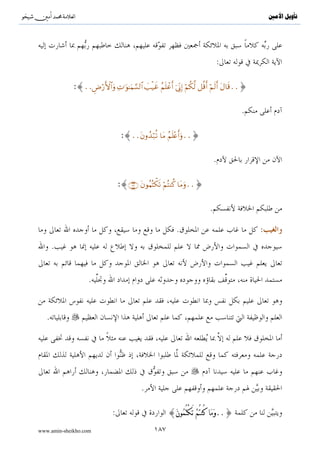 تأويل الأمين
العلامة محمد أمين شيخو
على ربّه كلاماً سبق به الملائكة أجمعين فظهر تفوّقه عليهم، هنالك خاطبهم ربُّهم بما أشارت إليه
الآية الكريمة في قوله تعالى:
﴿ ..قَالَ أَلَمْ أَقُل لَّكُمْ إِنِّىٓ أَعْلَمُ غَيْبَ ٱلسَّمَـٰوَٰتِ وَٱلْأَرْضِ..﴾:
آدم أعلى منكم.
﴿ ..وَأَعْلَمُ مَا تُبْدُونَ..﴾:
الآن من الإقرار بالحق لآدم.
﴿ ..وَمَا كُنتُمْ تَكْتُمُونَ﴾:
من طلبكم الخلافة لأنفسكم.
والغيب: كل ما غاب علمه عن المخلوق. فكل ما وقع وما سيقع، وكل ما أوجده الله تعالى وما
سيوجده في السموات والأرض مما لا علم للمخلوق به ولا إطلاع له عليه إنما هو غيب. والله
تعالى يعلم غيب السموات والأرض لأنه تعالى هو الخالق الموجد وكل ما فيهما قائم به تعالى
مستمد الحياة منه، متوقِّف بقاؤه ووجوده وحدوثه على دوام إمداد الله وتجلّيه.
وهو تعالى عليم بكل نفس وبما انطوت عليه، فقد علم تعالى ما انطوت عليه نفوس الملائكة من
العلم والوظيفة التي تتناسب مع علمهم، كما علم تعالى أهلية هذا الإنسان العظيم ﷺ وقابلياته.
أما المخلوق فلا علم له إلاَّ بما يُطلعه الله تعالى عليه، فقد يغيب عنه مثلاً ما في نفسه وقد تخفى عليه
درجة علمه ومعرفته كما وقع للملائكة لمَّا طلبوا الخلافة، إذ ظنُّوا أن لديهم الأهلية لذلك المقام
وغاب عنهم ما عليه سيدنا آدم ﷺ من سبق وتفوُّق في ذلك المضمار، وهنالك أراهم الله تعالى
الحقيقة وبيَّن لهم درجة علمهم وأوقفهم على جلية الأمر.
ويتبيَّن لنا من كلمة ﴿ ..وَمَا كُنتُمْ تَكْتُمُونَ﴾ الواردة في قوله تعالى:
www.amin-sheikho.com
١٨٧